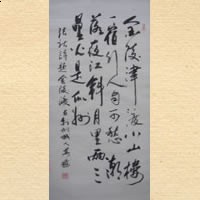 金陵津渡小山樓
一宿行人自可愁潮
落夜江斜月里兩三
星火是瓜州
張祜詩題金陵渡